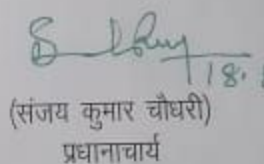 18.
(संजय कुमार चौधरी)
प्रधानाचार्य